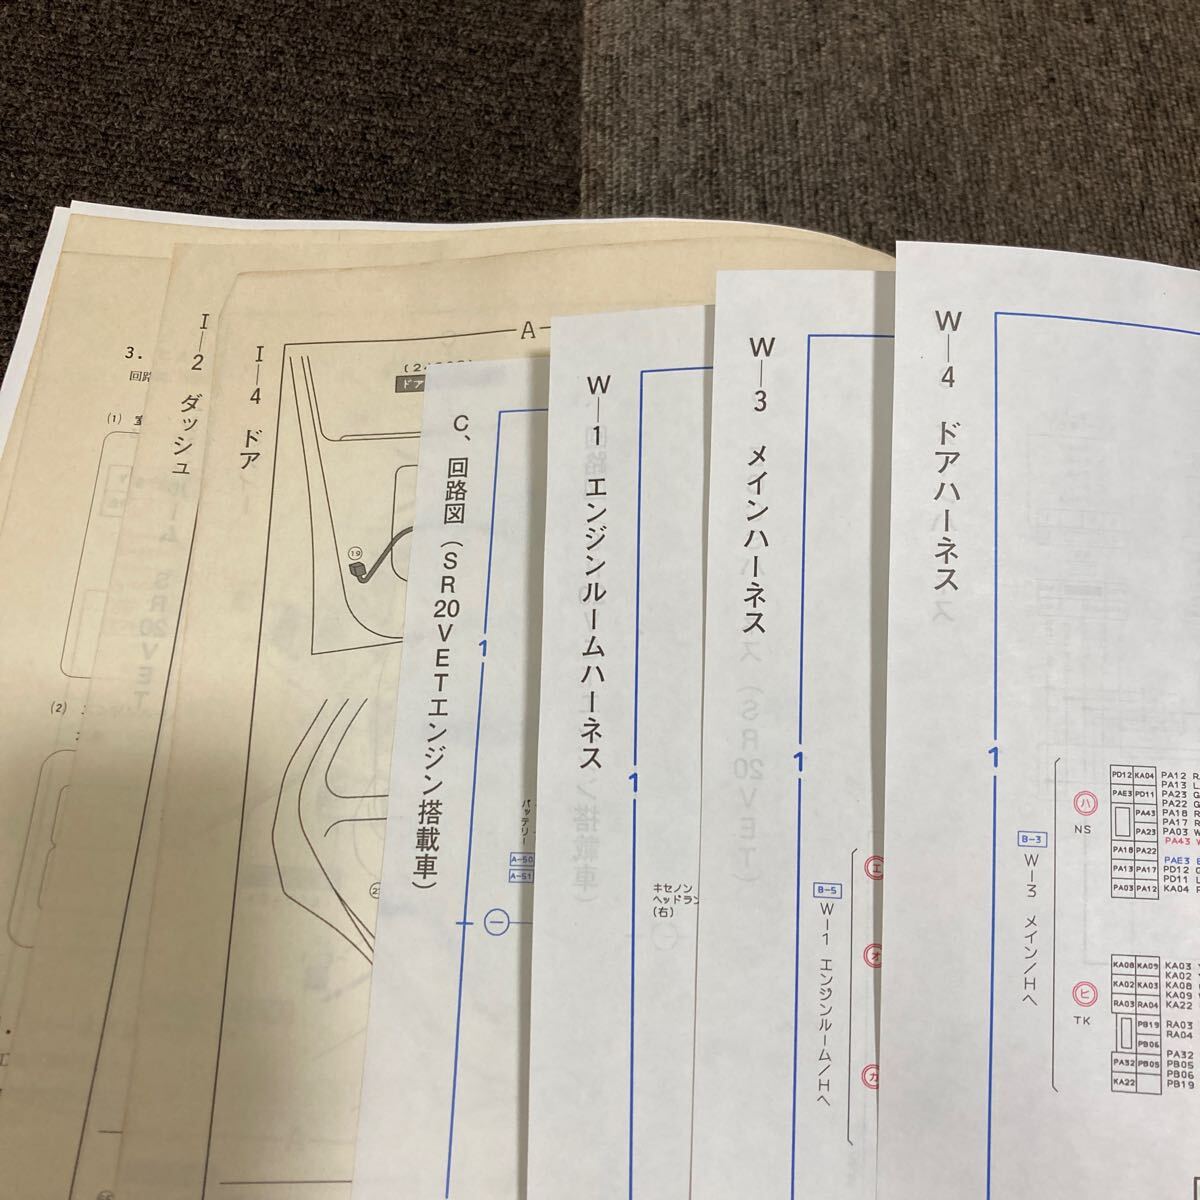 3.
回路
(1)
(2)
I—2 ダッシュ
I—4 ドア
A
ドア
19
C、回路図（SR20VETエンジン搭載車）
1
バッテリー
A-50
A-51
W—1 エンジンルームハーネス
1
キセノン
ヘッドラン
(右)
W—3 メインハーネス
1
B-5
W—1 エンジンルーム/Hへ
エ
オ
カ
W—4 ドアハーネス
1
B-3
W—3 メイン/Hへ
ハ
NS
PD12 KA04
PAE3 PD11
PA43
PA23
PA18 PA22
PA13 PA17
PA03 PA12
PA12 R
PA13 L
PA23 G
PA22 G
PA18 R
PA17 R
PA03 W
PA43
PAE3
PD12
PD11 L
KA04
ヒ
TK
KA08 KA09
KA02 KA03
RA03 RA04
PB19
PB06
PA32 PB05
KA22
KA03
KA02
KA08
KA09
KA22
RA03
RA04
PA32
PB05
PB06
PB19